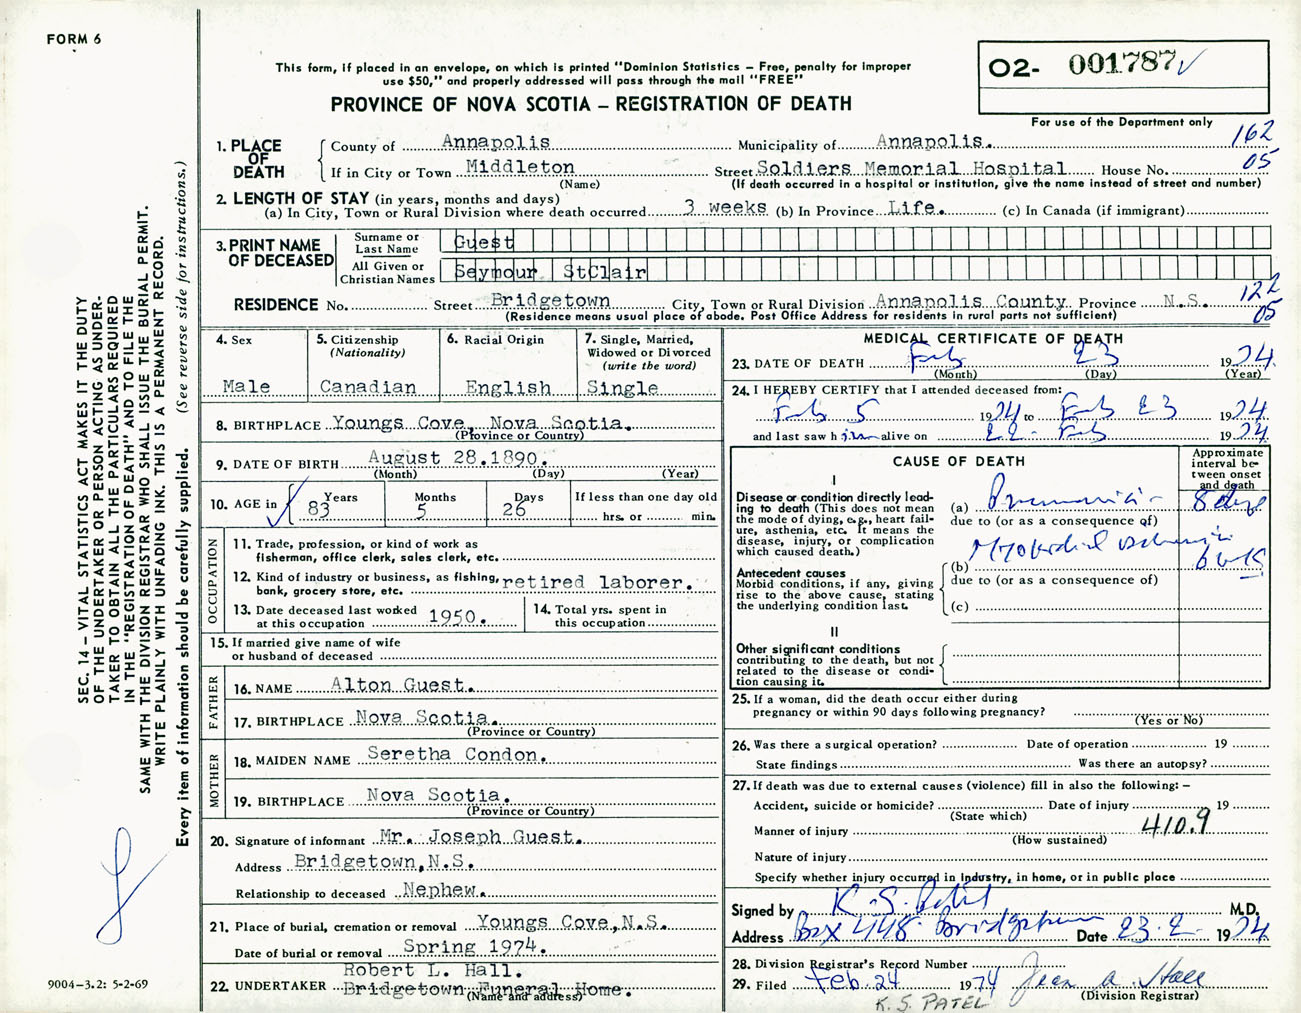 FORM 6
This form, if placed in an envelope, on which is printed "Dominion Statistics – Free, penalty for improper
use $50," and properly addressed will pass through the mail "FREE"
PROVINCE OF NOVA SCOTIA – REGISTRATION OF DEATH
O2- 001787
For use of the Department only
162
05
1. PLACE OF DEATH
County of Annapolis Municipality of Annapolis.
If in City or Town Middleton Street Soldiers Memorial Hospital House No.
(Name) (If death occurred in a hospital or institution, give the name instead of street and number)
2. LENGTH OF STAY (in years, months and days)
(a) In City, Town or Rural Division where death occurred 3 weeks (b) In Province Life. (c) In Canada (if immigrant)
3. PRINT NAME OF DECEASED
Surname or Last Name Guest
All Given or Christian Names Seymour StClair
122
05
RESIDENCE No. Street Bridgetown City, Town or Rural Division Annapolis County Province N.S.
(Residence means usual place of abode. Post Office Address for residents in rural parts not sufficient)
4. Sex
Male
5. Citizenship
(Nationality)
Canadian
6. Racial Origin
English
7. Single, Married,
Widowed or Divorced
(write the word)
Single
8. BIRTHPLACE Youngs Cove, Nova Scotia.
(Province or Country)
9. DATE OF BIRTH August 28.1890.
(Month) (Day) (Year)
10. AGE in Years Months Days If less than one day old
83 5 26 hrs. or min.
OCCUPATION
11. Trade, profession, or kind of work as
fisherman, office clerk, sales clerk, etc.
12. Kind of industry or business, as fishing,
bank, grocery store, etc. retired laborer.
13. Date deceased last worked
at this occupation 1950.
14. Total yrs. spent in
this occupation
15. If married give name of wife
or husband of deceased
FATHER
16. NAME Alton Guest.
17. BIRTHPLACE Nova Scotia.
(Province or Country)
MOTHER
18. MAIDEN NAME Seretha Condon.
19. BIRTHPLACE Nova Scotia.
(Province or Country)
20. Signature of informant Mr. Joseph Guest.
Address Bridgetown,N.S.
Relationship to deceased Nephew.
21. Place of burial, cremation or removal Youngs Cove,N.S.
Date of burial or removal Spring 1974.
Robert L. Hall.
22. UNDERTAKER Bridgetown Funeral Home.
(Name and address)
MEDICAL CERTIFICATE OF DEATH
23. DATE OF DEATH Feb 23 1974.
(Month) (Day) (Year)
24. I HEREBY CERTIFY that I attended deceased from:
Feb 5 1974 to Feb 23 1974
and last saw him alive on 22 - Feb 1974
CAUSE OF DEATH
Approximate
interval be-
tween onset
and death
I
Disease or condition directly lead-
ing to death (This does not mean
the mode of dying, e.g., heart fail-
ure, asthenia, etc. It means the
disease, injury, or complication
which caused death.)
(a) Pneumonia - 8 days
due to (or as a consequence of)
Myocardial ischemia
(b) 6 wks
due to (or as a consequence of)
(c)
Antecedent causes
Morbid conditions if any, giving
rise to the above cause, stating
the underlying condition last.
II
Other significant conditions
contributing to the death, but not
related to the disease or condi-
tion causing it.
25. If a woman, did the death occur either during
pregnancy or within 90 days following pregnancy?
(Yes or No)
26. Was there a surgical operation? Date of operation 19
State findings Was there an autopsy?
27. If death was due to external causes (violence) fill in also the following: –
Accident, suicide or homicide? Date of injury 19
(State which)
Manner of injury 410.9
(How sustained)
Nature of injury
Specify whether injury occurred in Industry, in home, or in public place
Signed by K. S. Patel M.D.
Address Box 448 Bridgetown Date 23.2. 1974
28. Division Registrar's Record Number
29. Filed Feb. 24 1974 Jean A. Hall
(Division Registrar)
K. S. PATEL
SEC. 14 – VITAL STATISTICS ACT MAKES IT THE DUTY
OF THE UNDERTAKER OR PERSON ACTING AS UNDER-
TAKER TO OBTAIN ALL THE PARTICULARS REQUIRED
IN THE "REGISTRATION OF DEATH" AND TO FILE THE
SAME WITH THE DIVISION REGISTRAR WHO SHALL ISSUE THE BURIAL PERMIT.
WRITE PLAINLY WITH UNFADING INK. THIS IS A PERMANENT RECORD.
Every item of information should be carefully supplied. (See reverse side for instructions.)
9004-3.2: 5-2-69